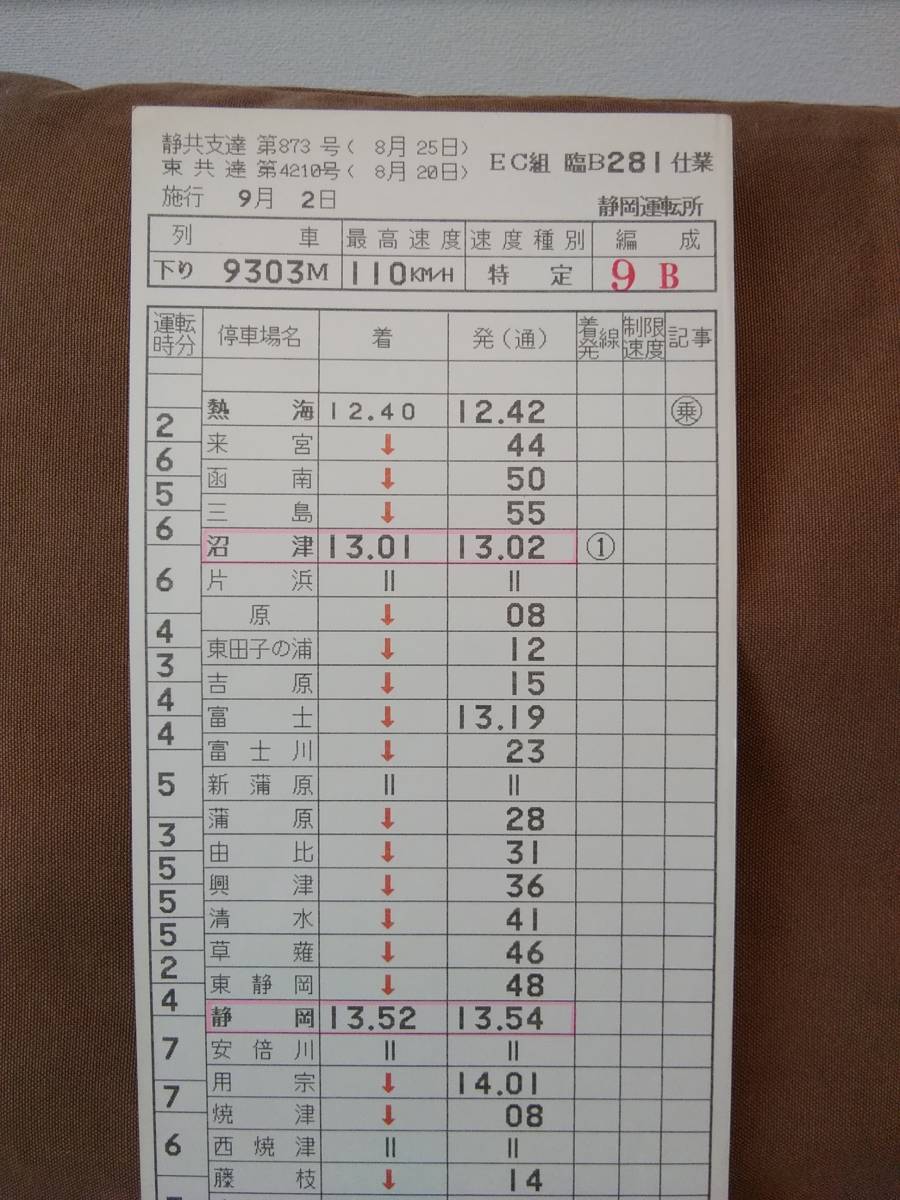 静共支達 第873号( 8月 25日)
東共達 第4210号( 8月 20日)
EC組 臨B281仕業
施行 9月 2日
静岡運転所
列車 最高速度 速度種別 編成
下り 9303M 110KM/H 特定 9 B
運転時分 停車場名 着 発(通) 着発線 制限速度 記事
熱海 12.40 12.42 乗
2
来宮 ↓ 44
6
函南 ↓ 50
5
三島 ↓ 55
6
沼津 13.01 13.02 ①
片浜 || ||
6
原 ↓ 08
4
東田子の浦 ↓ 12
3
吉原 ↓ 15
4
富士 ↓ 13.19
4
富士川 ↓ 23
新蒲原 || ||
5
蒲原 ↓ 28
3
由比 ↓ 31
5
興津 ↓ 36
5
清水 ↓ 41
5
草薙 ↓ 46
2
東静岡 ↓ 48
4
静岡 13.52 13.54
安倍川 || ||
7
用宗 ↓ 14.01
7
焼津 ↓ 08
西焼津 || ||
6
藤枝 ↓ 14